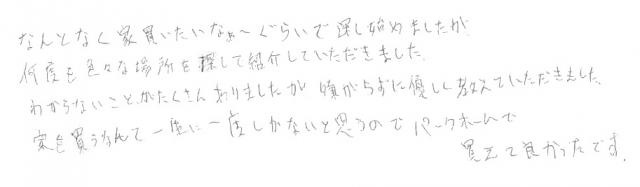 なんとなく家買いたいなぁ〜ぐらいで探し始めましたが
何度も色々な場所を探して紹介していただきました。
わからないことがたくさんありましたが嫌がらずに優しく教えていただきました。
家を買うなんて一生に一度しかないと思うのでパークホームで
買えて良かったです。